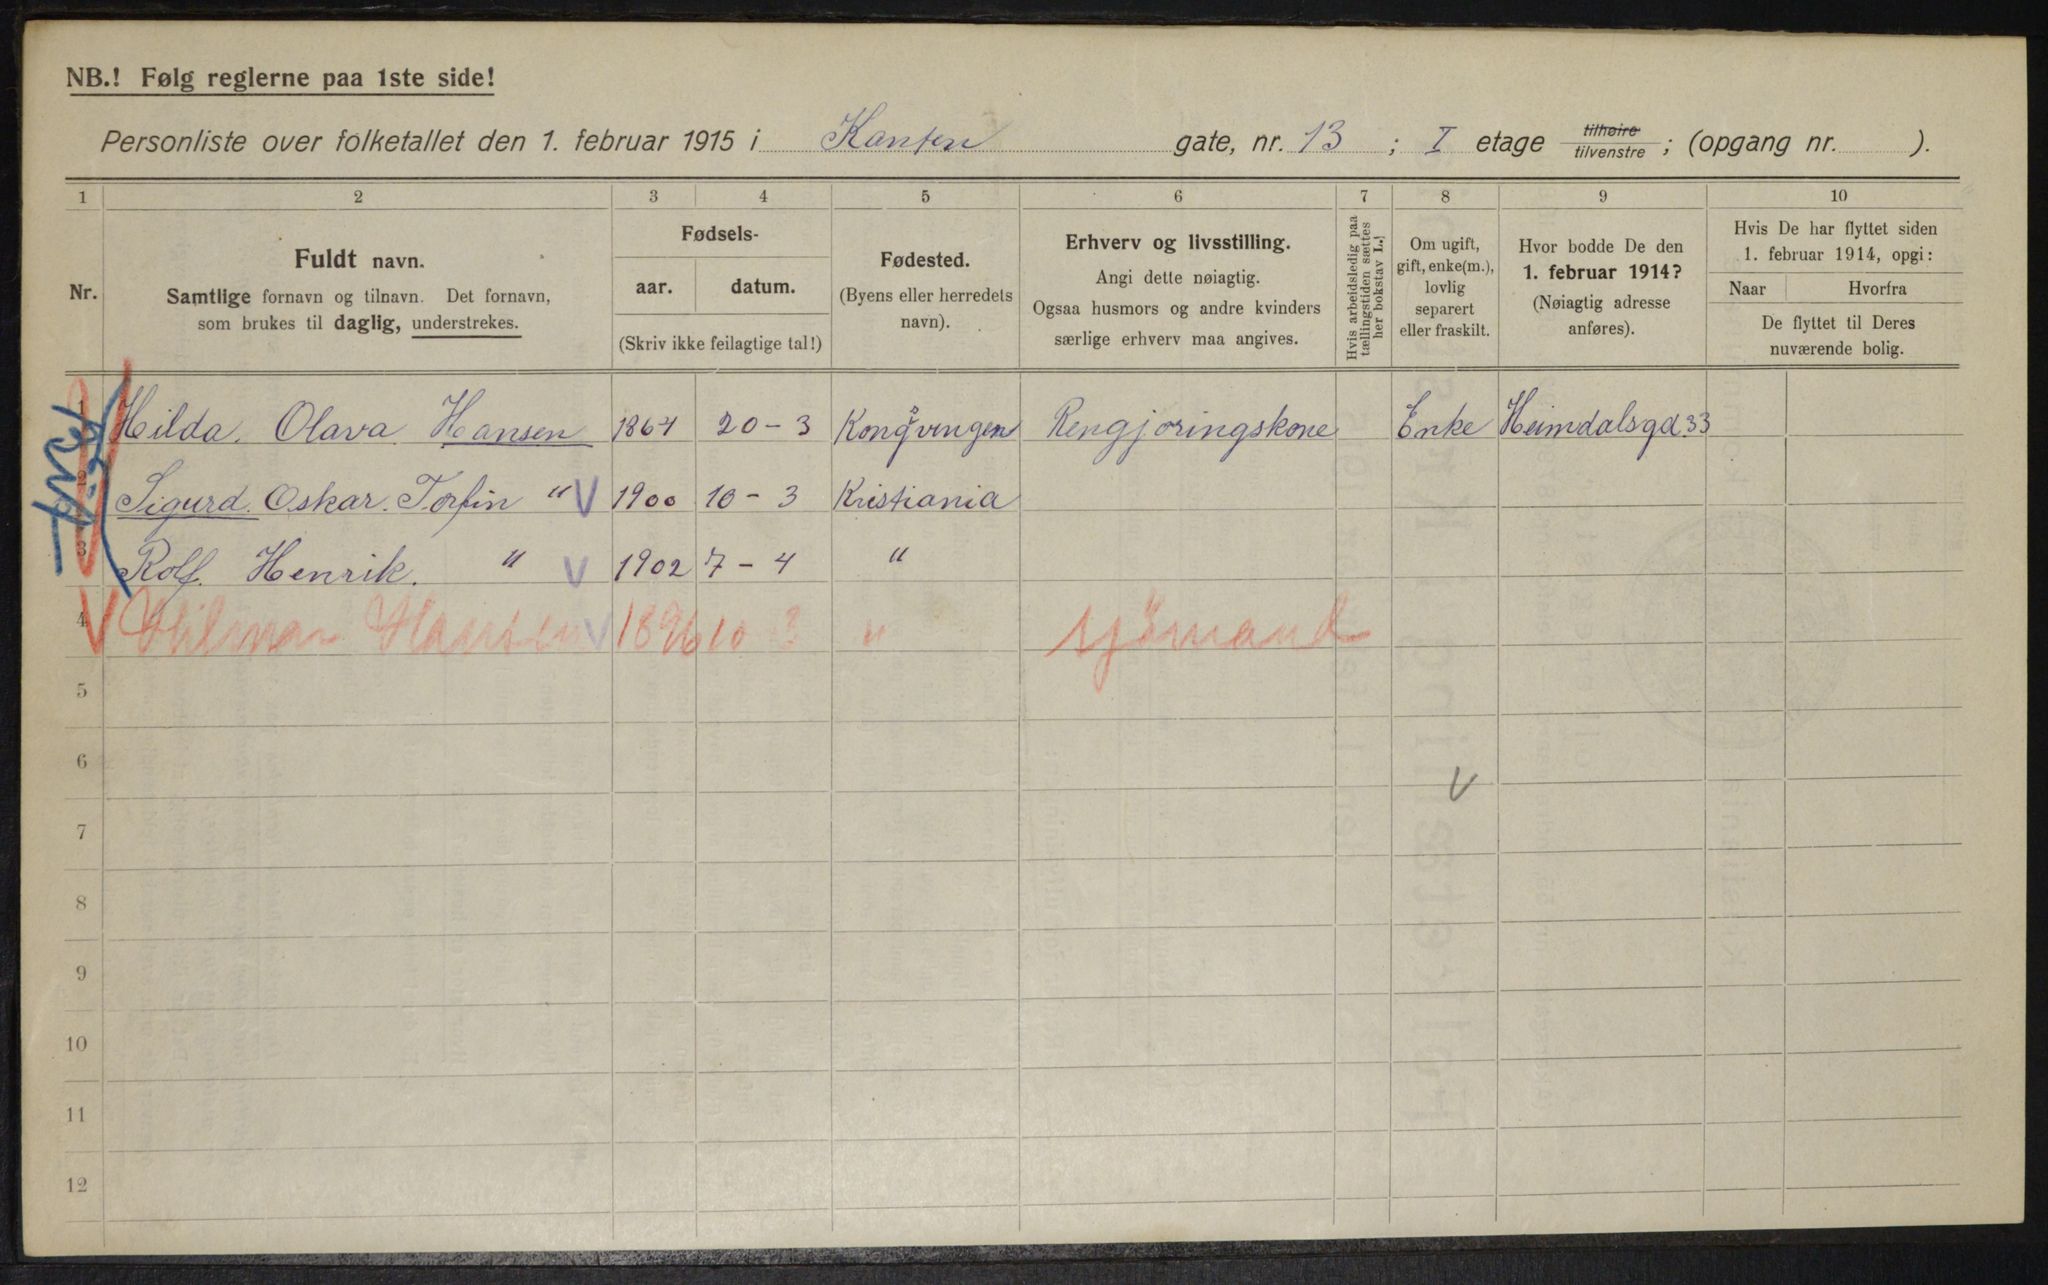 NB.! Følg reglerne paa 1ste side!
Personliste over folketallet den 1. februar 1915 i Kanten gate, nr. 13 ; I etage tilhøire tilvenstre ; (opgang nr. ).
1 2 3 4 5 6 7 8 9 10
Nr.
Fuldt navn.
Samtlige fornavn og tilnavn. Det fornavn,
som brukes til daglig, understrekes.
Fødsels-
aar. datum.
(Skriv ikke feilagtige tal!)
Fødested.
(Byens eller herredets
navn).
Erhverv og livsstilling.
Angi dette nøiagtig.
Ogsaa husmors og andre kvinders
særlige erhverv maa angives.
Hvis arbeidsledig paa
tællingstiden sættes
her bokstav L.!
Om ugift,
gift, enke(m.),
lovlig
separert
eller fraskilt.
Hvor bodde De den
1. februar 1914?
(Nøiagtig adresse
anføres).
Hvis De har flyttet siden
1. februar 1914, opgi:
Naar Hvorfra
De flyttet til Deres
nuværende bolig.
1 Hilda. Olava. Hansen 1864 20-3 Kongsvingen Rengjøringskone Enke Heimdalsgd. 33
2 Sigurd. Oskar. Torfin " V 1900 10-3 Kristiania
3 Rolf. Henrik. " V 1902 7-4 "
V 4 Hilmar Hansen V 1896 10 3 " sjömand
5
6
V
7
8
9
10
11
12